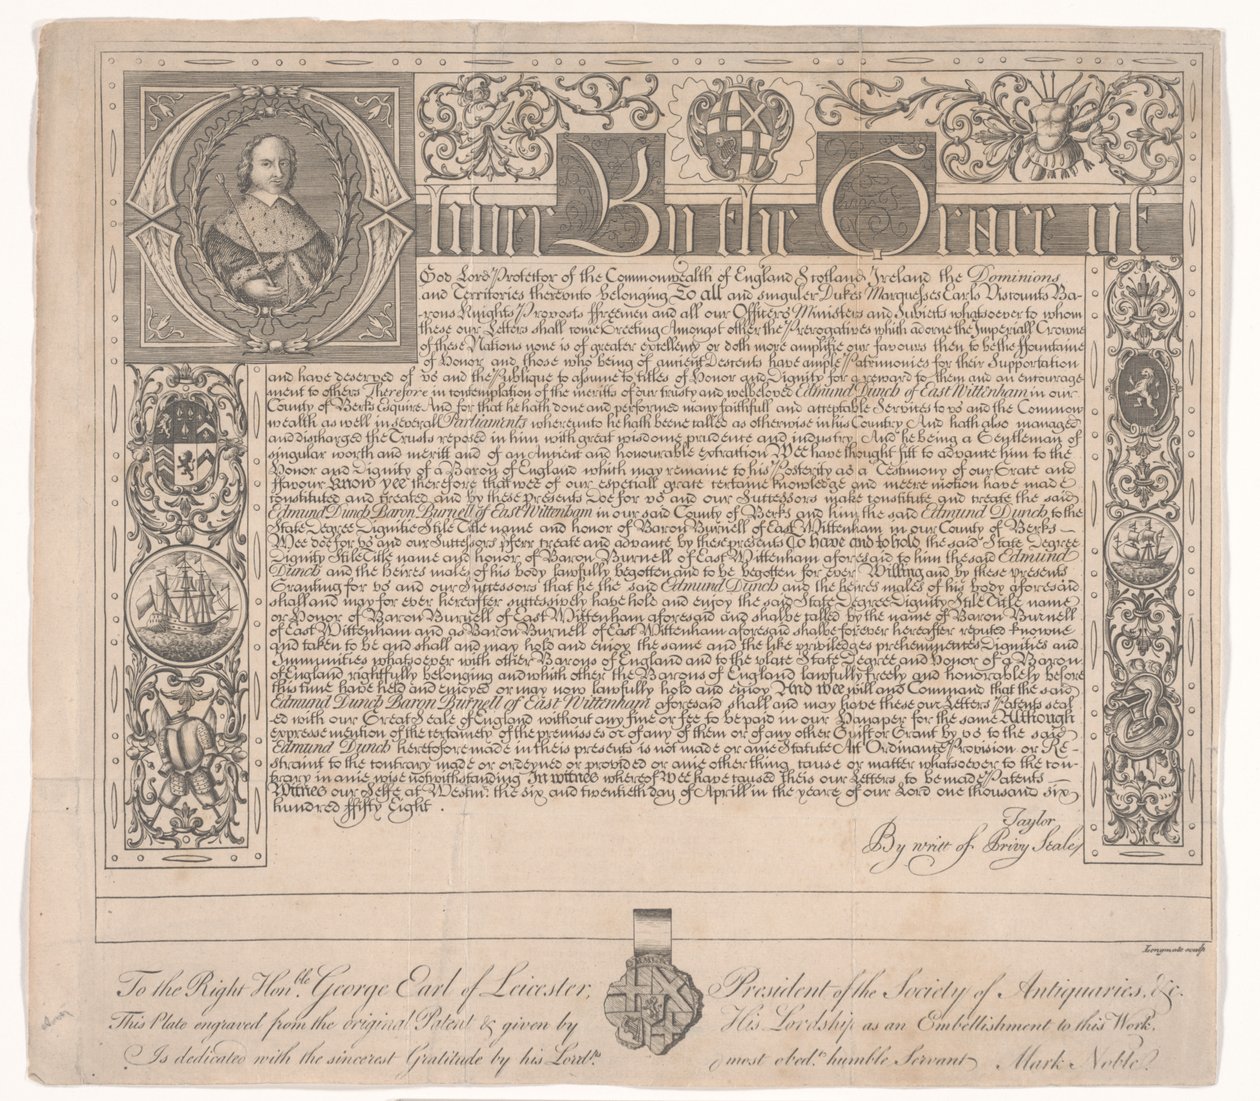 Oliver By the Grace of
God Lord Protector of the Commonwealth of England Scotland Ireland the Dominions
and Territories thereunto belonging To all and singuler Dukes Marquesses Earls Viscounts Ba-
rons Knights Provosts ffreemen and all our Officers Ministers and Subiects whatsoever to whom
these our Letters shall come Greeting Amongst other the Prerogatives which adorne the Imperiall Crowne
of these Nations none is of greater excellency or doth more amplifie our favours then to be the ffountaine
of Honor and those who being of antient Descents have ample Patrimonies for their Supportation
and have deserved of us and the Publique to assume to titles of Honor and Dignity for a reward to them and an encourage
ment to others Therefore in contemplation of the meritts of our trusty and welbeloved Edmund Dunch of East Wittenham in our
County of Berks Esquire And for that he hath done and performed many faithfull and acceptable Services to us and the Common
wealth as well in severall Parliaments whereunto he hath beene called as otherwise in his Country And hath also managed
and discharged the Trusts reposed in him with great wisdome prudence and industry And he being a Gentleman of
singular worth and meritt and of an Antient and honourable extraction Wee have thought fitt to advance him to the
Honor and Dignity of a Baron of England which may remaine to his Posterity as a Testimony of our Grace and
ffavour Know yee therefore that wee of our especiall grace certaine knowledge and meere motion have made
constituted and created and by these presents Doe for us and our Successors make constitute and create the said
Edmund Dunch Baron Burnell of East Wittenham in our said County of Berks and him the said Edmund Dunch to the
State Degree Dignitie Stile Title name and honor of Baron Burnell of East Wittenham in our County of Berks —
Wee doe for us and our Successors pferr create and advance by these presents To have and to hold the said State Degree
Dignity Stile Title name and honor of Baron Burnell of East Wittenham aforesaid to him the said Edmund
Dunch and the heires males of his body lawfully begotten and to be begotten for ever Willing and by these presents
Granting for us and our Successors that he the said Edmund Dunch and the heires males of his body aforesaid
shall and may for ever hereafter successively have hold and enjoy the said State Degree Dignity Stile Title name
or Honor of Baron Burnell of East Wittenham aforesaid and shalbe called by the name of Baron Burnell
of East Wittenham and as Baron Burnell of East Wittenham aforesaid shalbe forever hereafter reputed knowne
and taken to be and shall and may hold and enjoy the same and the like priviledges preheminences Dignities and
Immunities whatsoever with other Barons of England and to the place State Degree and Honor of a Baron
of England rightfully belonging and which other the Barons of England lawfully freely and honorablely before
this time have held and enjoyed or may now lawfully hold and enjoy And wee will and Command that the said
Edmund Dunch Baron Burnell of East Wittenham aforesaid shall and may have these our Letters Patents seal
ed with our Great Seale of England without any fine or fee to be paid in our Hanaper for the same Although
expresse mention of the certainety of the premisses or of any of them or of any other Guift or Grant by us to the said
Edmund Dunch heretofore made in theis presents is not made or anie Statute Act Ordinance Provision or Re-
straint to the contrary made or ordeyned or provided or anie other thing cause or matter whatsoever to the con-
trary in anie wise notwithstanding In witnes whereof Wee have caused theis our Letters to be made Patents —
Witnes our Selfe at Westmr. the six and twentieth day of Aprill in the yeare of our Lord one thousand six
hundred ffifty Eight .
Taylor
By writt of Privy Seale
Longmate sculp
To the Right Honble. George Earl of Leicester, President of the Society of Antiquaries, &c.
This Plate engraved from the original Patent & given by His Lordship as an Embellishment to this Work.
Is dedicated with the sincerest Gratitude by his Lordps. most obedt. humble Servant Mark Noble.